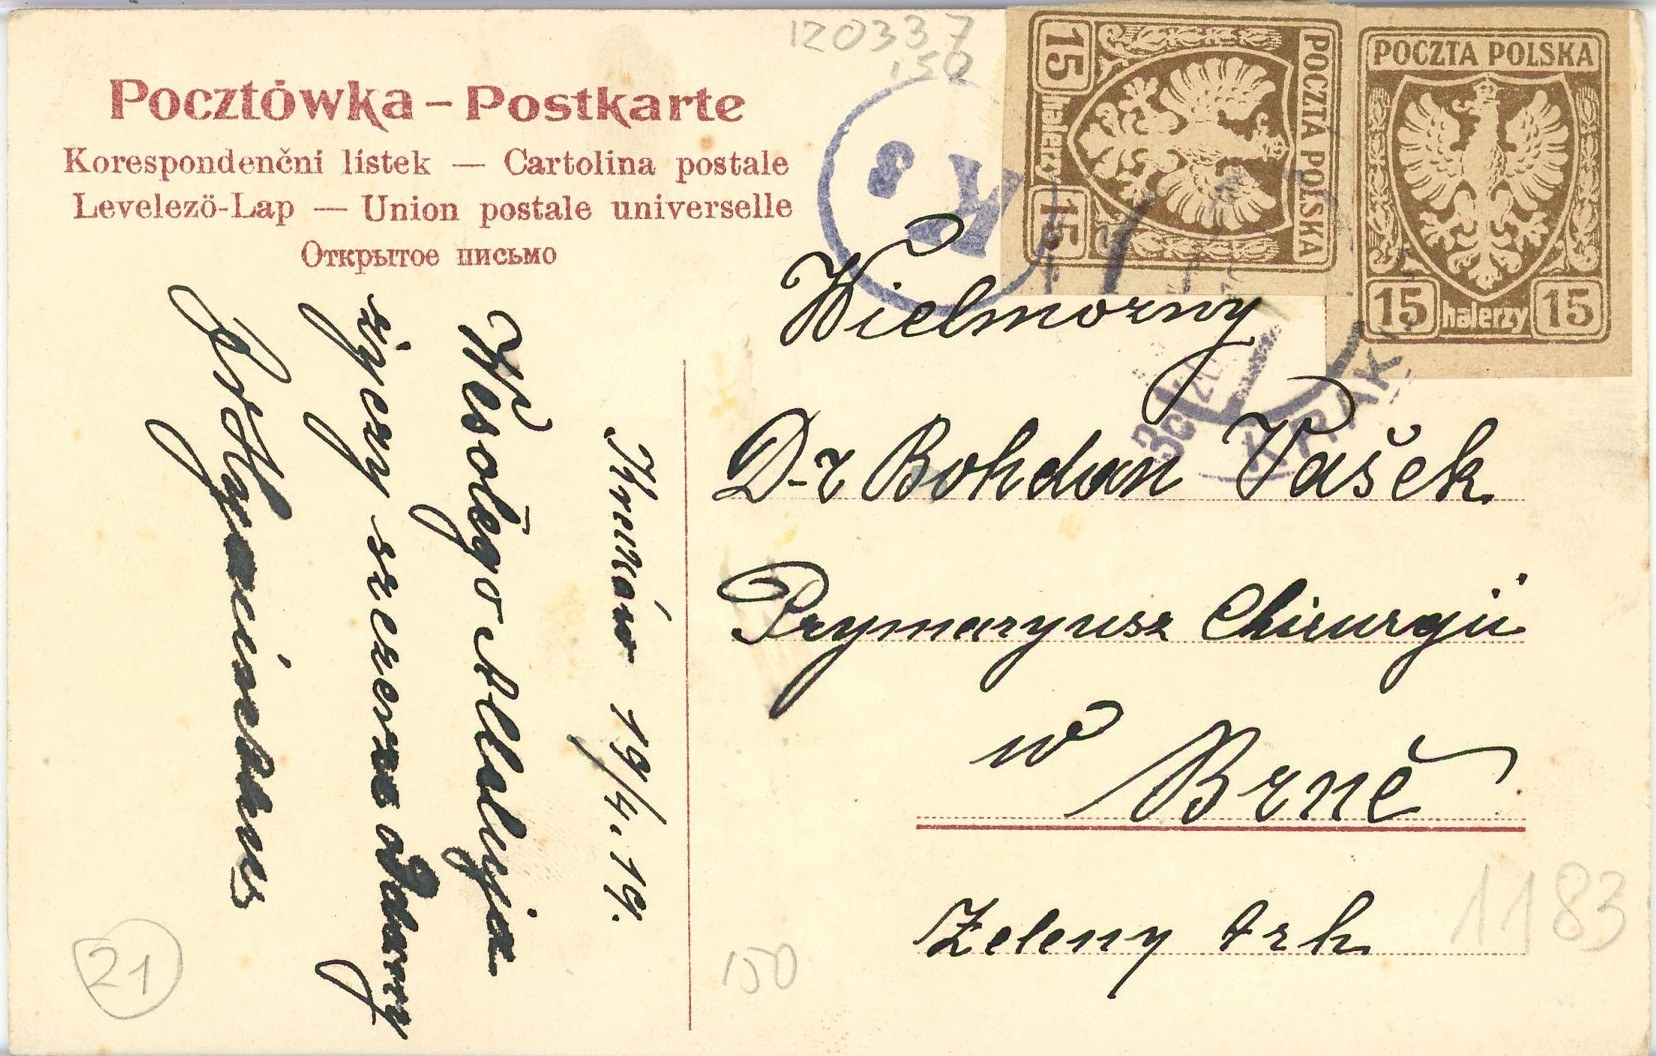 120337
150
Pocztówka – Postkarte
Korespondenčni lístek — Cartolina postale
Levelezö-Lap — Union postale universelle
Открытое письмо
POCZTA POLSKA
15 halerzy 15
POCZTA POLSKA
15 halerzy 15
KRAK
3c
Wielmożny
D-r Bohdan Vašek
Prymaryusz Chirurgii
w Brně
Zeleny trh
Kraków 19/4.19.
Wesołego Alleluja
życzy szczerze oddany
21
150
1183